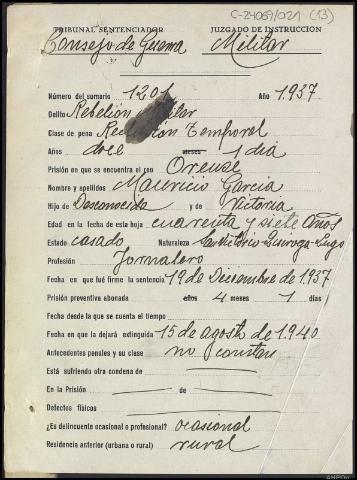 C-24069/021 (13)
TRIBUNAL SENTENCIADOR JUZGADO DE INSTRUCCIÓN
Consejo de Guerra Militar
Número del sumario 1201 Año 1.937
Delito Rebelión
Clase de pena Reclusión Temporal
Años doce meses 1 día
Prisión en que se encuentra el reo Orense
Nombre y apellidos Mauricio Garcia
Hijo de Desconocido y de Victoria
Edad en la fecha de esta hoja cuarenta y siete años
Estado casado Naturaleza Quiroga-Lugo
Profesión Jornalero
Fecha en que fué firme la sentencia 19 de Diciembre de 1937
Prisión preventiva abonada años 4 meses 1 días
Fecha desde la que se cuenta el tiempo
Fecha en que la dejará extinguida 15 de agosto de 1.940
Antecedentes penales y su clase no constan
Está sufriendo otra condena de
En la Prisión de
Defectos físicos
¿Es delincuente ocasional o profesional? ocasional
Residencia anterior (urbana o rural) rural